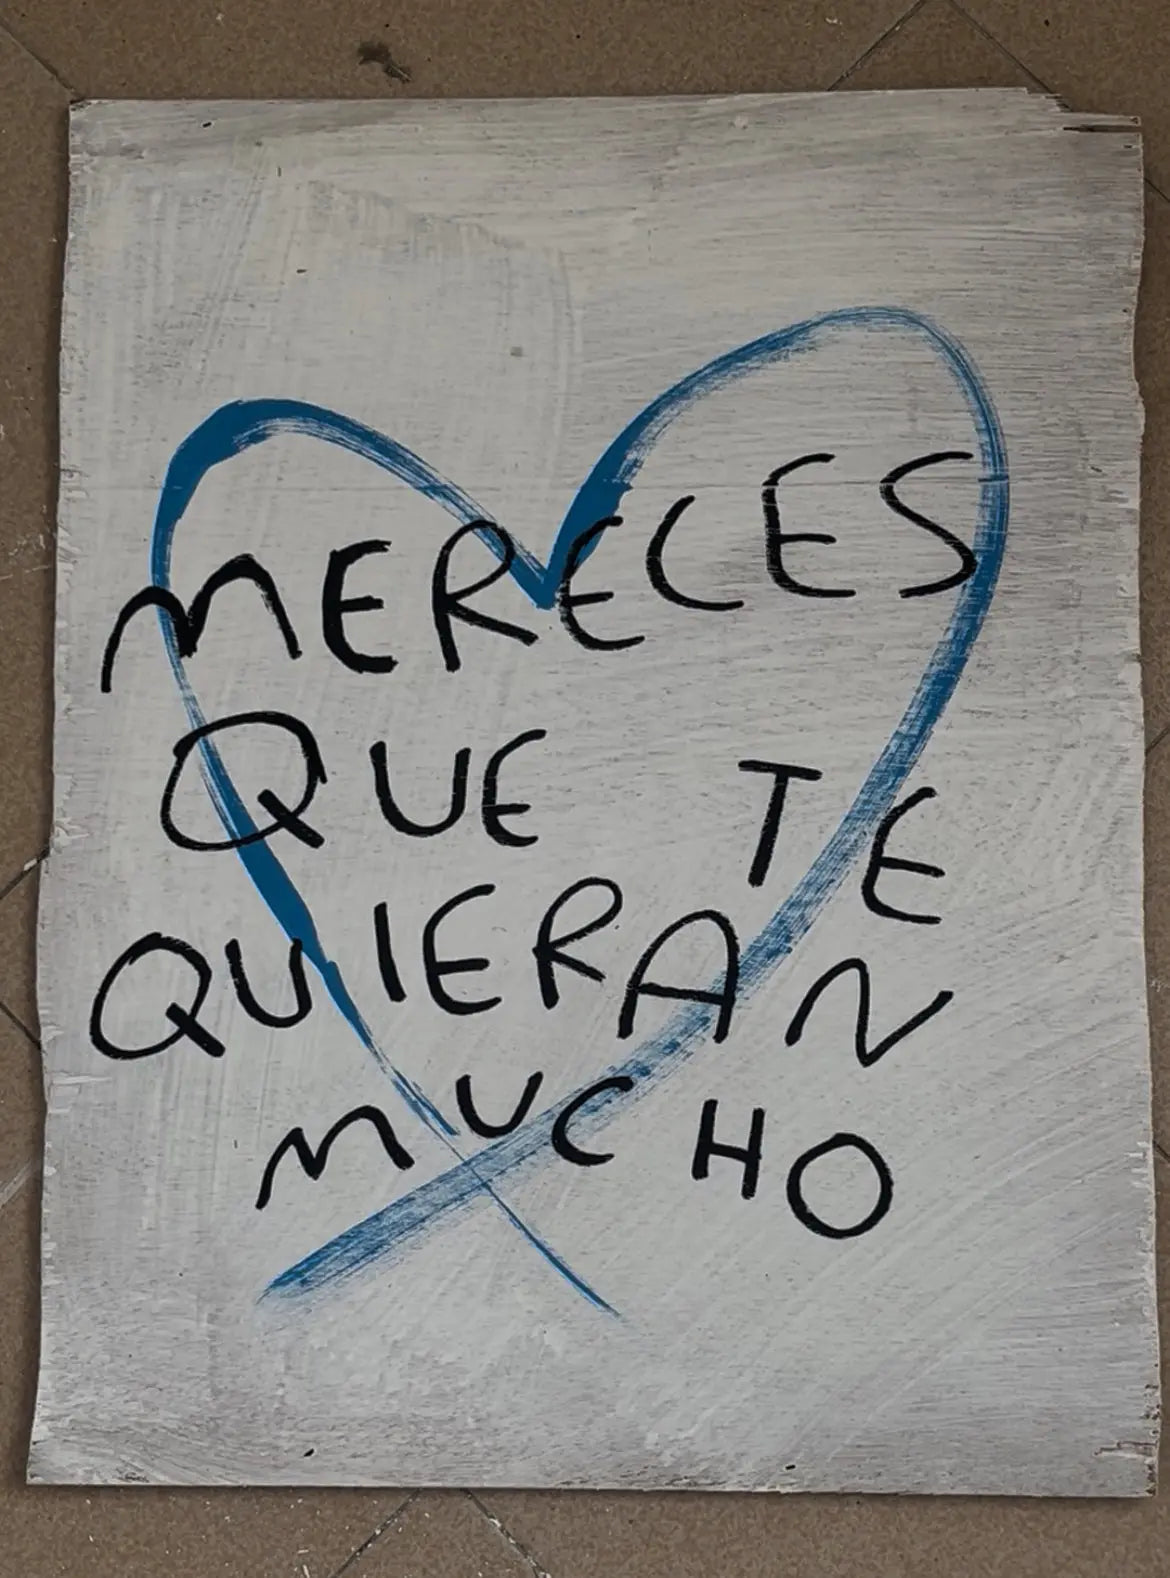 MERECES
QUE TE
QUIERAN
MUCHO